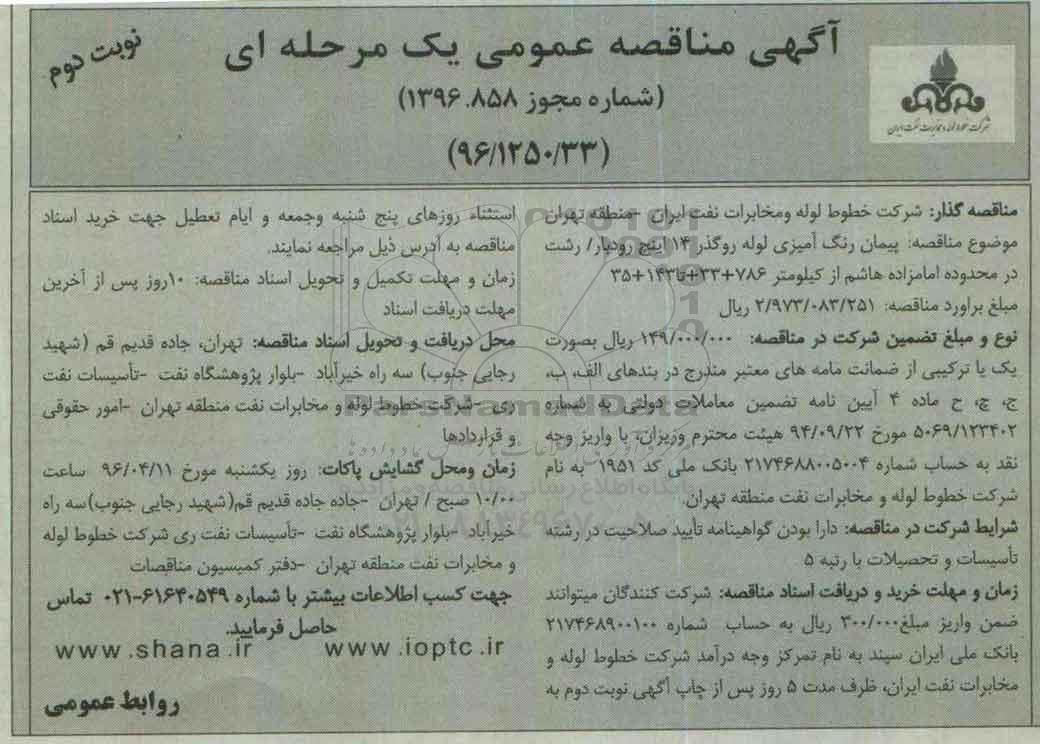 آگهی مناقصه عمومی یک مرحله ای
نوبت دوم
(شماره مجوز ۱۳۹۶.۸۵۸)
(۹۶/۱۲۵۰/۳۳)
شرکت خطوط لوله و مخابرات نفت ایران
مناقصه گذار: شرکت خطوط لوله ومخابرات نفت ایران -منطقه تهران
موضوع مناقصه: پیمان رنگ آمیزی لوله روگذر ۱۴ اینچ رودبار/ رشت
در محدوده امامزاده هاشم از کیلومتر ۷۸۶+۳۳+تا۱۴۳+۳۵
مبلغ براورد مناقصه: ۲/۹۷۳/۰۸۳/۲۵۱ ریال
نوع و مبلغ تضمین شرکت در مناقصه: ۱۴۹/۰۰۰/۰۰۰ ریال بصورت
یک یا ترکیبی از ضمانت مامه های معتبر مندرج در بندهای الف، ب،
ج، چ، ح ماده ۴ آیین نامه تضمین معاملات دولتی به شماره
۵۰۶۹/۱۲۳۴۰۲ مورخ ۹۴/۰۹/۲۲ هیئت محترم وزیران، با واریز وجه
نقد به حساب شماره ۲۱۷۴۶۸۸۰۰۵۰۰۴ بانک ملی کد ۱۹۵۱ به نام
شرکت خطوط لوله و مخابرات نفت منطقه تهران.
شرایط شرکت در مناقصه: دارا بودن گواهینامه تأیید صلاحیت در رشته
تأسیسات و تحصیلات با رتبه ۵
زمان و مهلت خرید و دریافت اسناد مناقصه: شرکت کنندگان میتوانند
ضمن واریز مبلغ۳۰۰/۰۰۰ ریال به حساب شماره ۲۱۷۴۶۸۹۰۰۱۰۰
بانک ملی ایران سیند به نام تمرکز وجه درآمد شرکت خطوط لوله و
مخابرات نفت ایران، ظرف مدت ۵ روز پس از چاپ آگهی نوبت دوم به
استثناء روزهای پنج شنبه وجمعه و ایام تعطیل جهت خرید اسناد
مناقصه به آدرس ذیل مراجعه نمایند.
زمان و مهلت تکمیل و تحویل اسناد مناقصه: ۱۰روز پس از آخرین
مهلت دریافت اسناد
محل دریافت و تحویل اسناد مناقصه: تهران، جاده قدیم قم (شهید
رجایی جنوب) سه راه خیرآباد -بلوار پژوهشگاه نفت -تأسیسات نفت
ری -شرکت خطوط لوله و مخابرات نفت منطقه تهران -امور حقوقی
و قراردادها
زمان ومحل گشایش پاکات: روز یکشنبه مورخ ۹۶/۰۴/۱۱ ساعت
۱۰/۰۰ صبح / تهران -جاده جاده قدیم قم(شهید رجایی جنوب)سه راه
خیرآباد -بلوار پژوهشگاه نفت -تأسیسات نفت ری شرکت خطوط لوله
و مخابرات نفت منطقه تهران -دفتر کمیسیون مناقصات
جهت کسب اطلاعات بیشتر با شماره ۶۱۶۴۰۵۴۹-۰۲۱ تماس
حاصل فرمایید.
www.shana.ir www.ioptc.ir
روابط عمومی
ParsNamadData